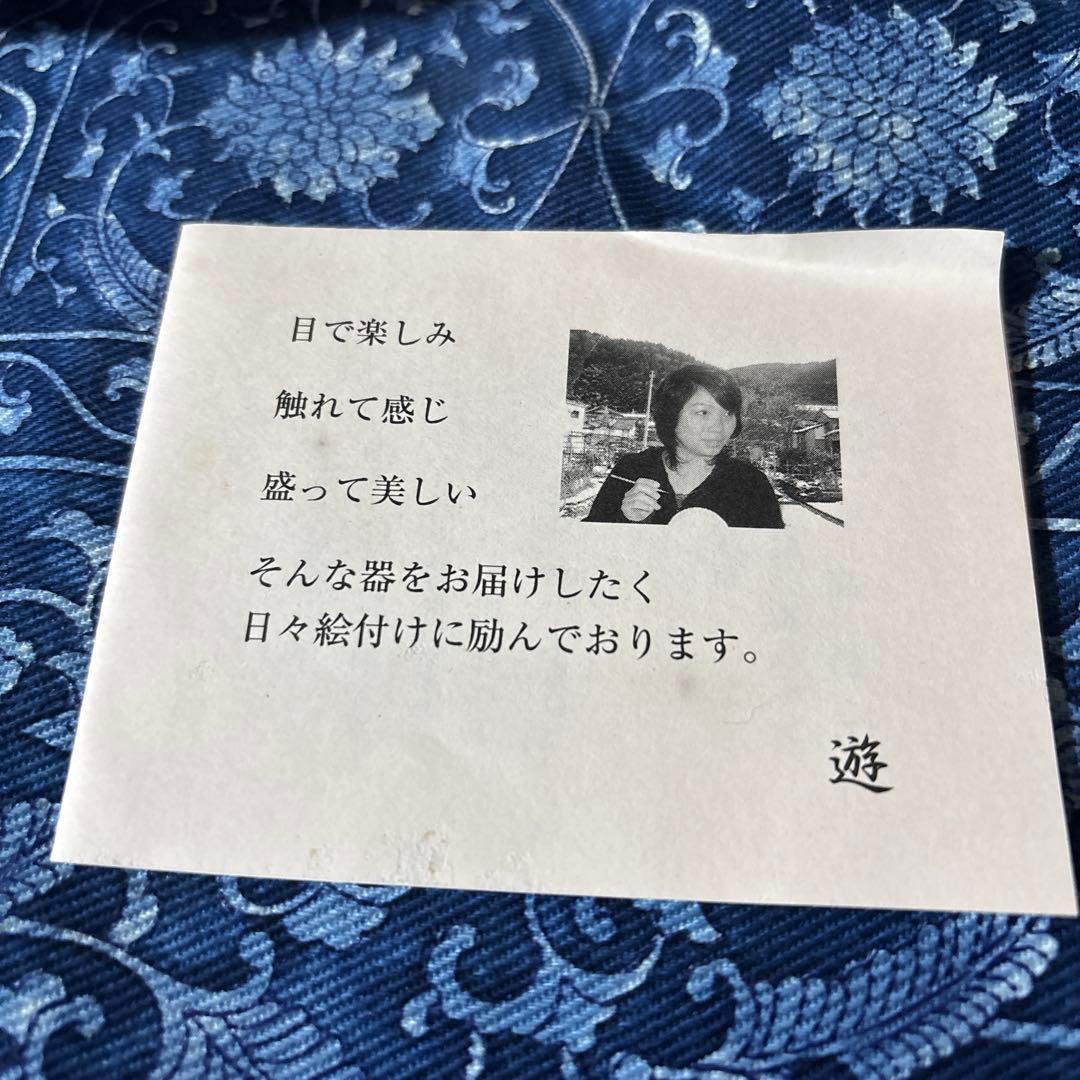 目で楽しみ
触れて感じ
盛って美しい
そんな器をお届けしたく
日々絵付けに励んでおります。
遊